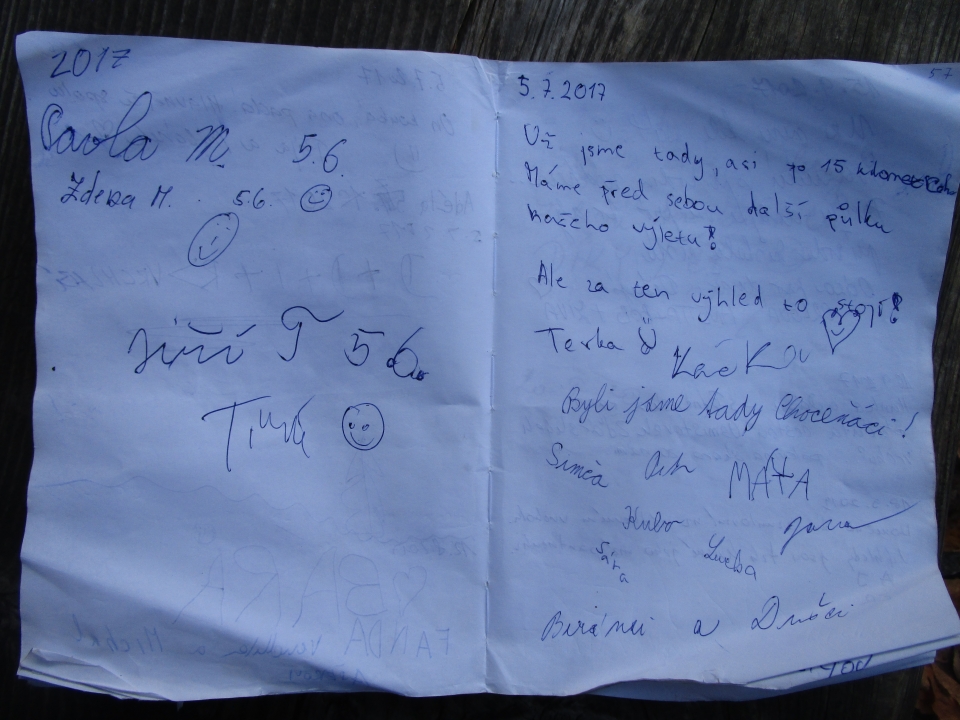 2017
Pavla M. 5.6.
Zdena M. 5.6.
Jiří T 5.6.
5.7.2017
Už jsme tady, asi po 15 kilometrech
Máme před sebou další půlku
našeho výletu!
Ale za ten výhled to stojí!
Terka
Byli jsme tady Choceňáci!
Simča MÁŤA
Kuba Jana
Sára Lucka
Beránci a